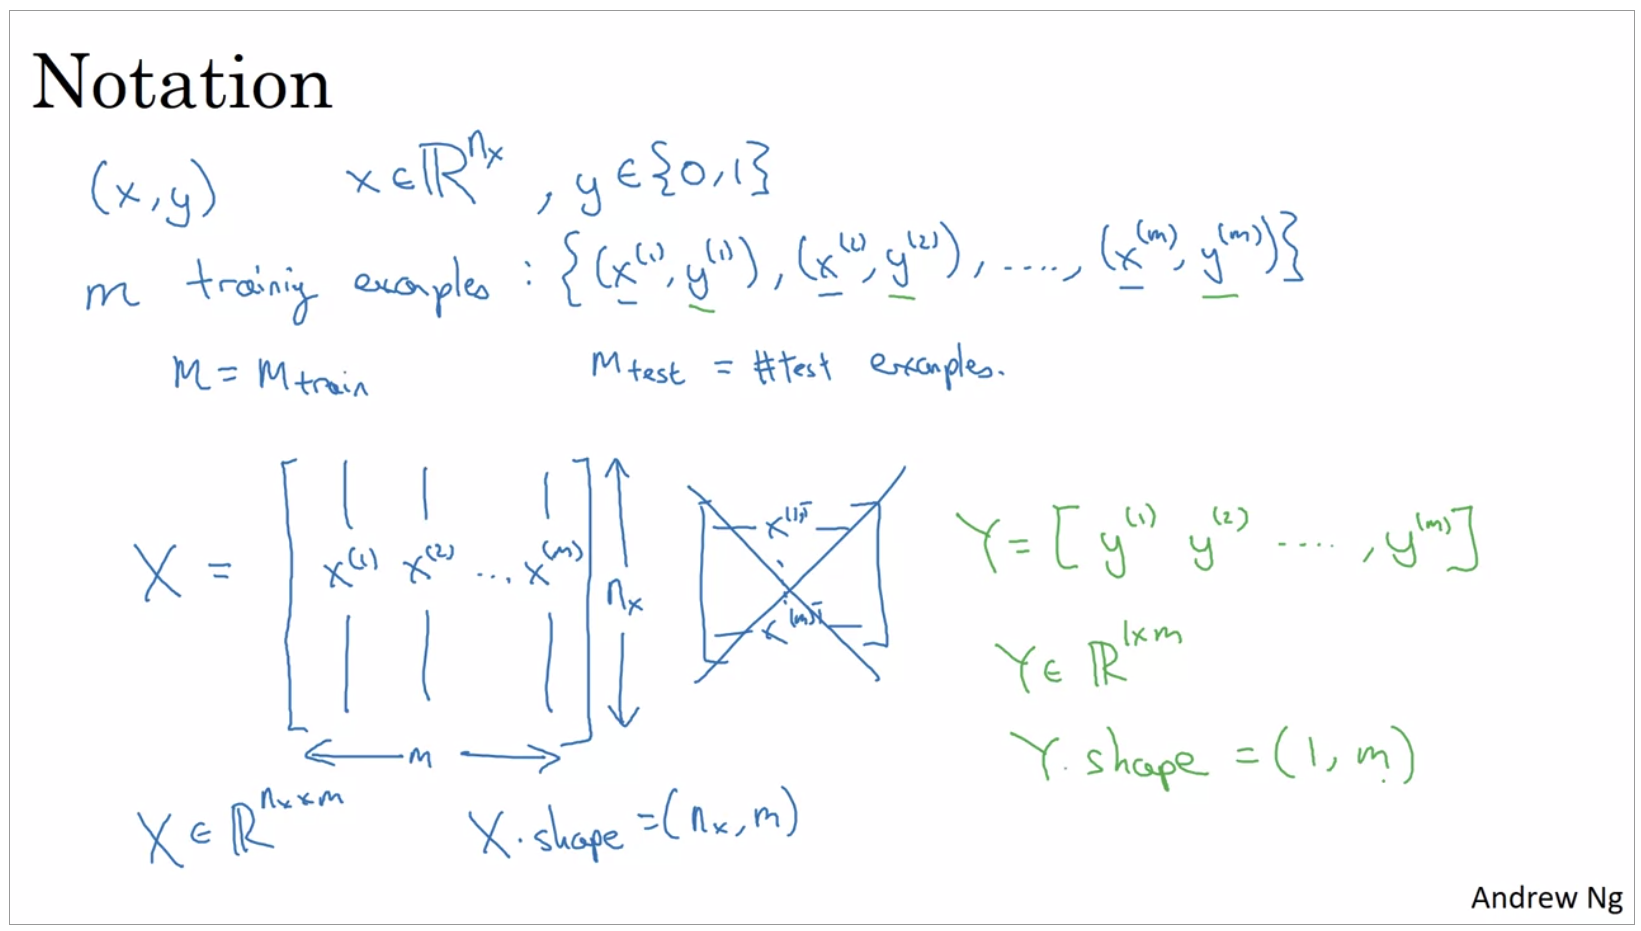 Notation
(x,y) x ∈ ℝ^{n_x} , y ∈ {0,1}
m training examples : {(x^{(1)}, y^{(1)}), (x^{(2)}, y^{(2)}), ...., (x^{(m)}, y^{(m)})}
M = M_{train} M_{test} = #test examples.
X = [ x^{(1)} x^{(2)} ... x^{(m)} ] n_x
m
x^{(1)T}
x^{(m)T}
Y = [ y^{(1)} y^{(2)} .... , y^{(m)} ]
Y ∈ ℝ^{1×m}
Y.shape = (1, m)
X ∈ ℝ^{n_x × m} X.shape = (n_x, m)
Andrew Ng